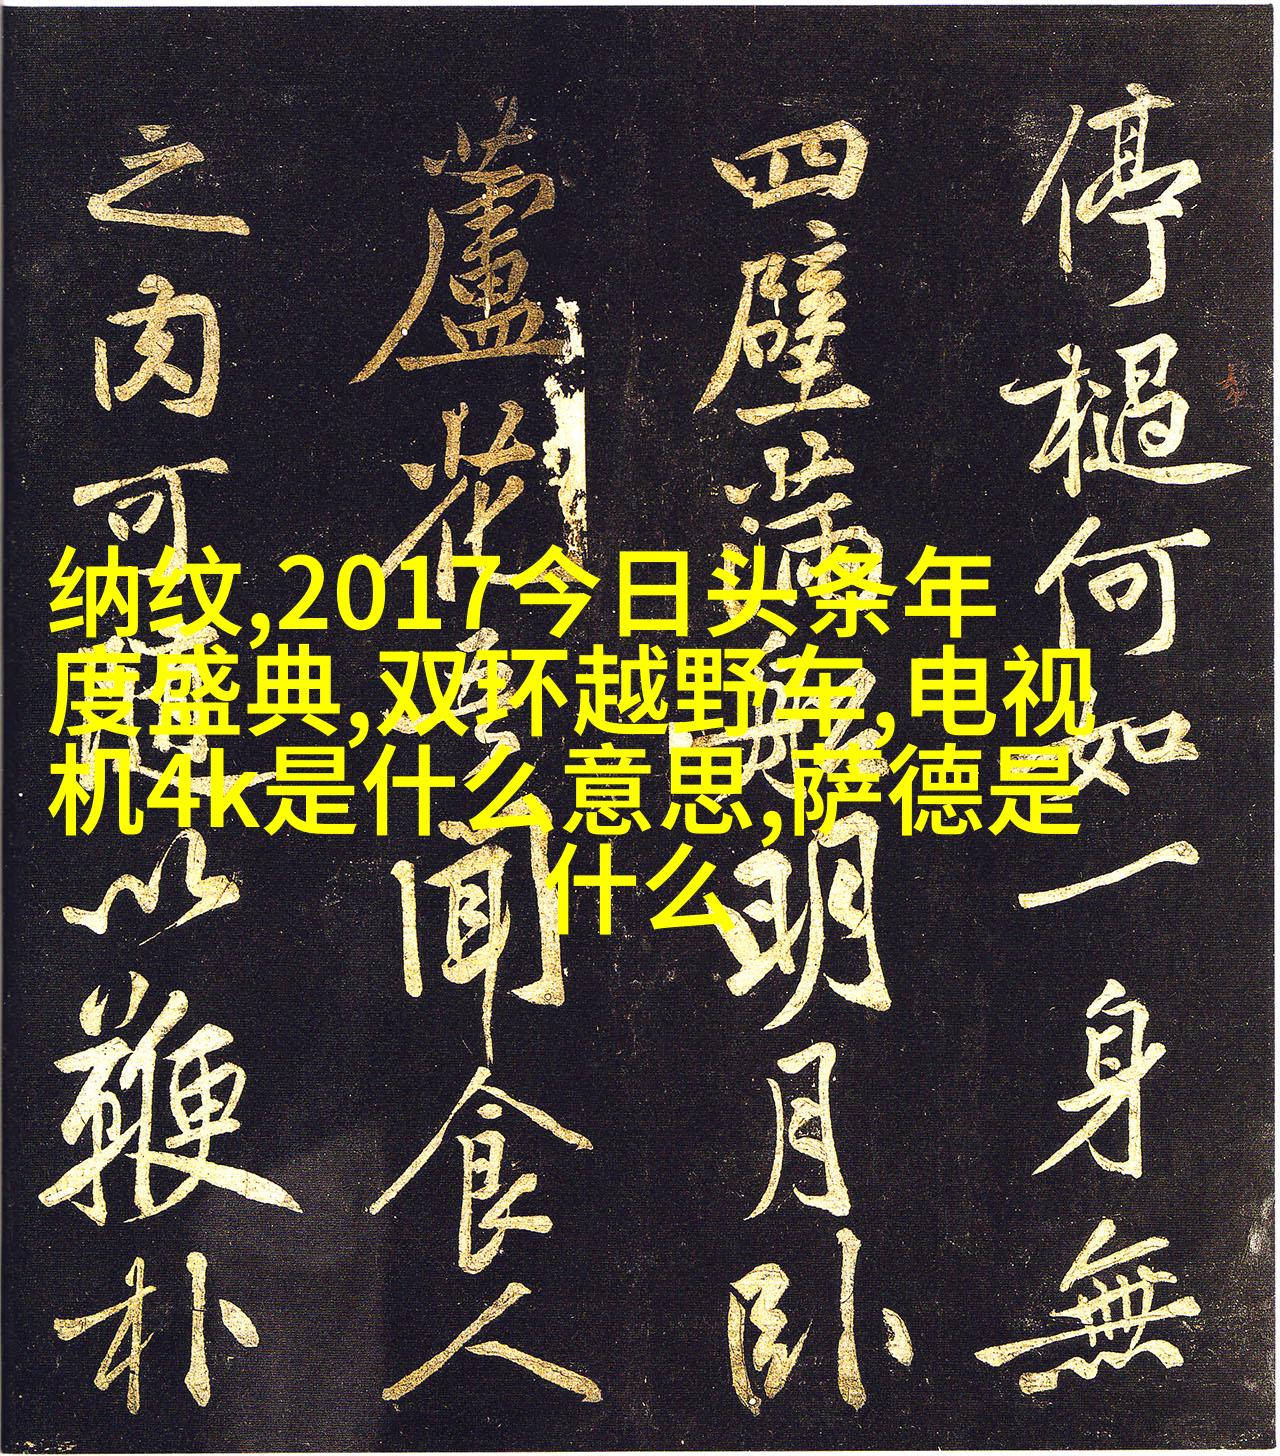 纳纹,2017今日头条年
度盛典,双环越野车,电视
机4k是什么意思,萨德是
什么
停檛何如一身無
四壁明月臥
蘆花吾聞食人
之肉可隨以鞭朴